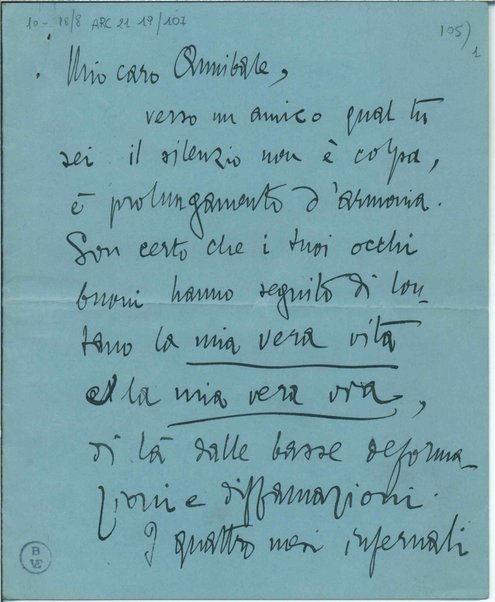 10 - 18/8 ARC 21 19/107
105)
1
Mio caro Annibale,
verso un amico qual tu
sei il silenzio non è colpa,
è prolungamento d'armonia.
Son certo che i tuoi occhi
buoni hanno seguito di lon-
tano la mia vera vita
e la mia vera ora,
di là dalle basse deforma-
zioni e diffamazioni.
I quattro mesi infernali
B
VE